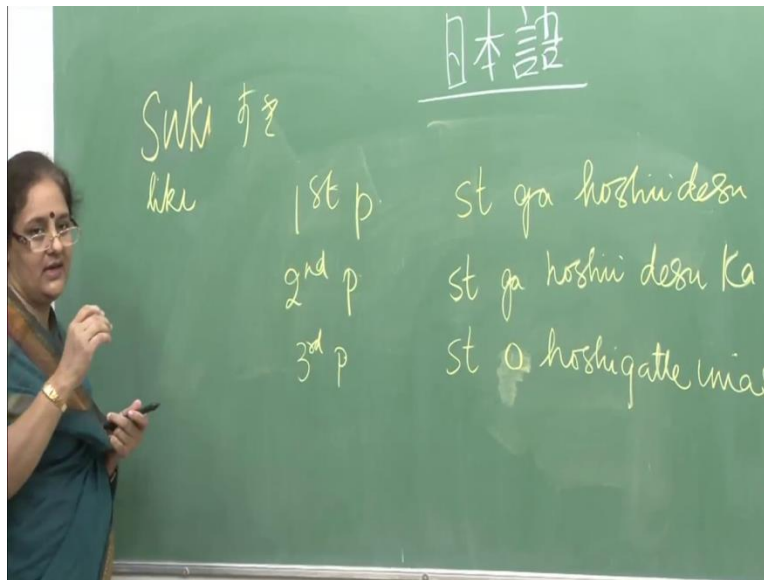 日本語
Suki すき
like
1st p. st ga hoshii desu
2nd p. st ga hoshii desu ka
3rd p st o hoshigatte imas